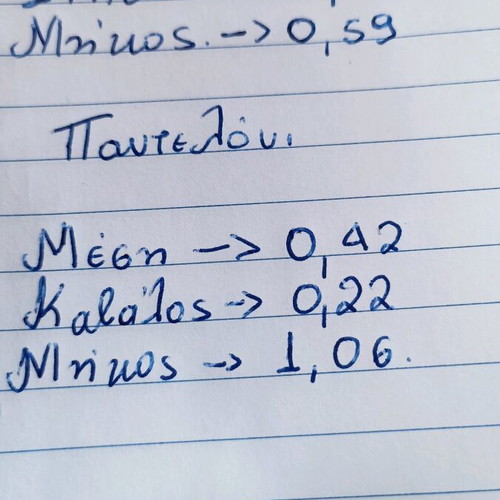 Μήκος. -> 0,59
Παντελόνι
Μέση -> 0,42
Καβάλος -> 0,22
Μήκος -> 1,06.